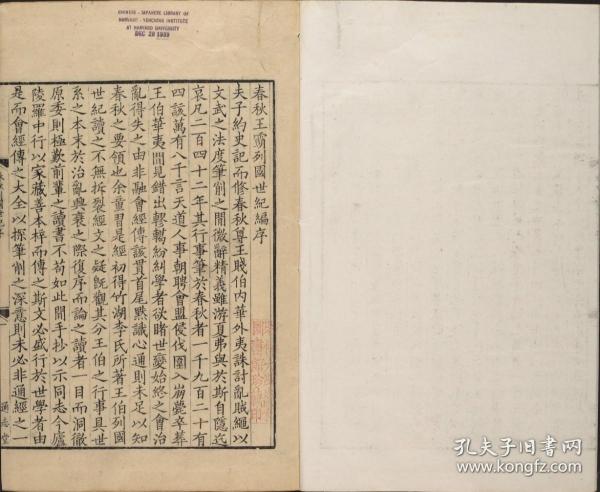 CHINESE - JAPANESE LIBRARY OF
HARVARD - YENCHING INSTITUTE
AT HARVARD UNIVERSITY
DEC 28 1939
春秋王霸列國世紀編序
夫子約史記而修春秋尊王賤伯内華外夷誅討亂賊繩以
文武之法度筆削之間微辭精義雖游夏弗與於斯自隱迄
哀凡二百四十二年其行事筆於春秋者一千九百二十有
四該萬有八千言天道人事朝聘會盟侵伐圍入崩薨卒葬
王伯華夷間見錯出轇轕紛糾學者欲睹世變始終之會治
亂得失之由非融會經傳該貫首尾默識心通則未足以知
春秋之要領也余童習是經初得竹湖李氏所著王伯列國
世紀讀之不無拆裂經文之疑旣觀其分王伯之行事具世
系之本末於治亂興衰之際復序而論之讀者一目而洞徹
原委則極歎前輩之讀書不苟如此間手抄以示同志今廬
陵羅中行以家藏善本梓而傳之斯文必盛行於世學者由
是而會經傳之大全以探筆削之深意則未必非通經之一
通志堂
孔夫子旧书网
www.kongfz.com